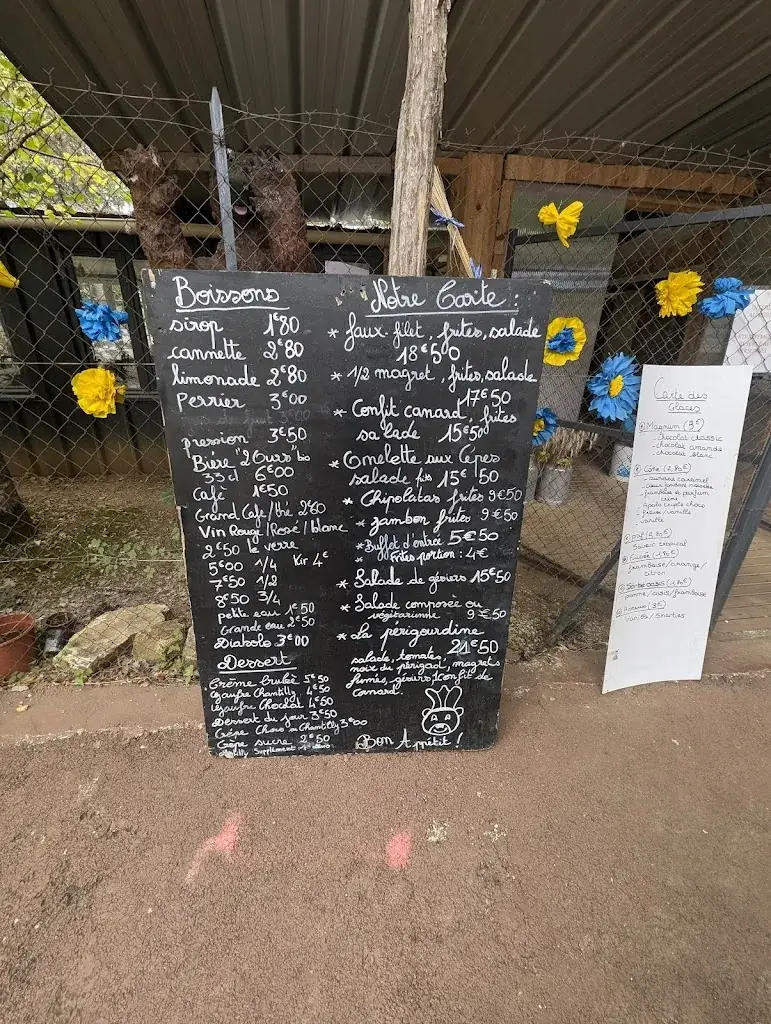 Boissons
sirop 1€80
cannette 2€80
limonade 2€80
Perrier 3€00
pression 3€50
Bière "2 Ours" bio
33 cl 6€00
Café 1€50
Grand Café/thé 2€80
Vin Rouge/Rosé/blanc
2€50 le verre
5€00 1/4 Kir 4€
7€50 1/2
8€50 3/4
Petite eau 1€50
Grande eau 2€50
Diabolo 3€00
Dessert
Crème brulée 5€50
Gaufre Chantilly 4€50
Gaufre Chocolat 4€50
Dessert du jour 3€50
Crêpe Choco ou Chantilly 3€00
Crêpe sucre 2€50
Chantilly Supplément
Notre Carte :
* faux-filet, frites, salade
18€500
* 1/2 magret, frites, salade
17€50
* Confit canard, frites
salade 15€50
* Omelette aux Cèpes
salade 15€50
* Chipolatas frites 9€50
* jambon frites 9€50
* Buffet d'entrée 5€50
* Frites portion : 4€
* Salade de gésiers 15€50
* Salade composée ou
végétarienne 9€50
* La périgourdine
21€50
salade, tomates,
noix du périgord, magrets
fumés, gésiers, 1 confit de
canard.
Bon Appétit !
Carte des
Glaces
Magnum (3€)
- chocolat classic
- chocolat amande
- chocolat blanc
Cône (2,80€)
- vanille
Push (2,80€)
Saveur tropical
Fusée (1,80€)
framboise/orange/
citron
pomme/cassis/framboise
(3€)
Vanille/Smarties